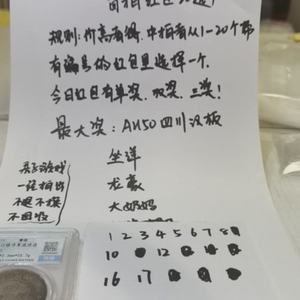 规则:价高者得.中拍者从1-20个带
有编号的红包里选择一个.
今日红包有单奖.双奖.三奖!
最大奖: AU50四川汉板
亲子游戏
一经拍出
不退不换
不回收
坐洋
龙毫
大奶妈
1 2 3 4 5 6 7 8
10 12
16 17